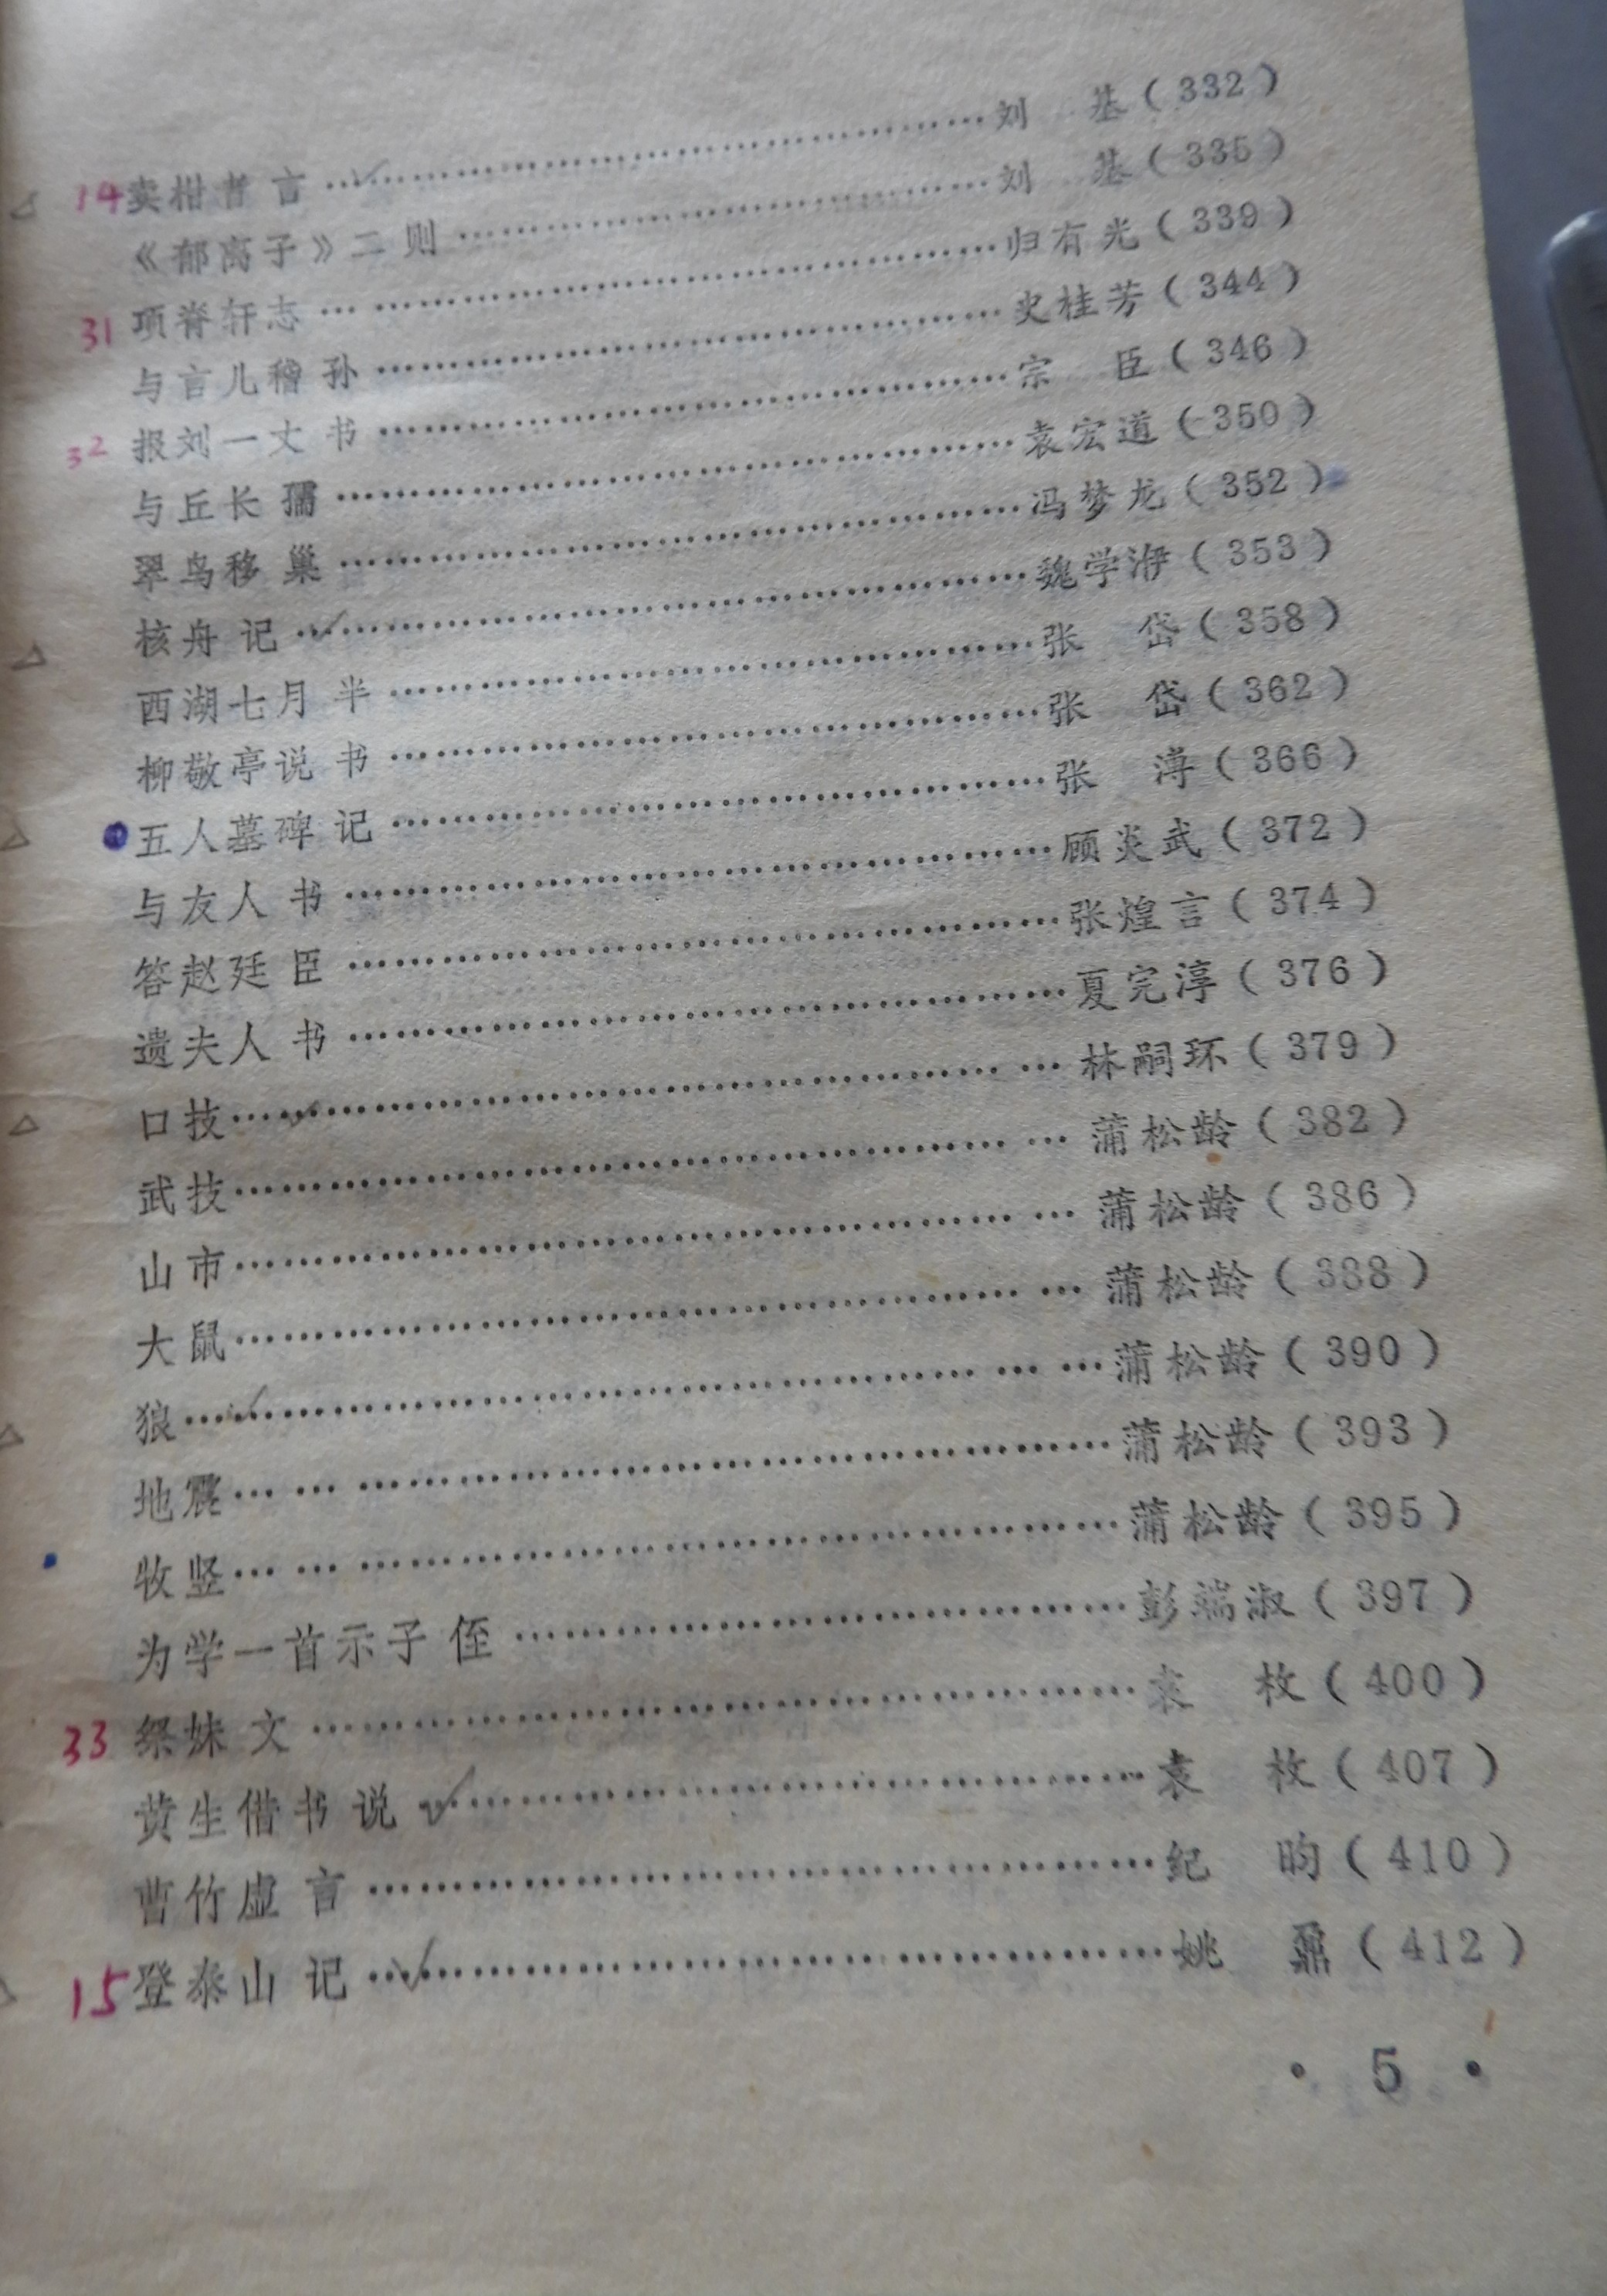 14 卖柑者言………………………………刘 基（332）
《郁离子》二则………………………………刘 基（335）
31 项脊轩志………………………………归有光（339）
与言儿稽孙………………………………史桂芳（344）
32 报刘一丈书………………………………宗 臣（346）
与丘长孺………………………………袁宏道（350）
翠鸟移巢………………………………冯梦龙（352）
核舟记………………………………魏学洢（353）
西湖七月半………………………………张 岱（358）
柳敬亭说书………………………………张 岱（362）
五人墓碑记………………………………张 溥（366）
与友人书………………………………顾炎武（372）
答赵廷臣………………………………张煌言（374）
遗夫人书………………………………夏完淳（376）
口技………………………………林嗣环（379）
武技………………………………蒲松龄（382）
山市………………………………蒲松龄（386）
大鼠………………………………蒲松龄（388）
狼………………………………蒲松龄（390）
地震………………………………蒲松龄（393）
牧竖………………………………蒲松龄（395）
为学一首示子侄………………………………彭端淑（397）
33 祭妹文………………………………袁 枚（400）
黄生借书说………………………………袁 枚（407）
曹竹虚言………………………………纪 昀（410）
15 登泰山记………………………………姚 鼐（412）
· 5 ·